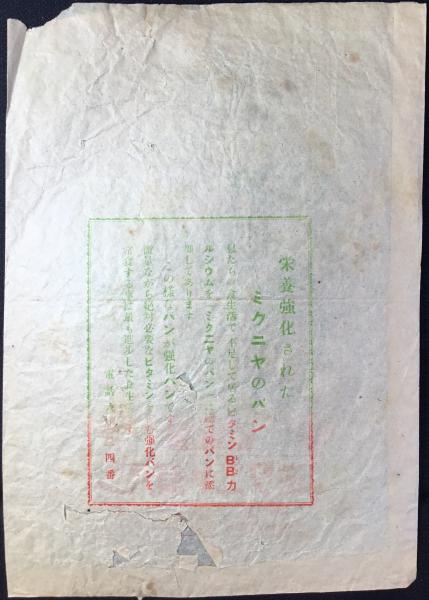 栄養強化された
ミクニヤのパン
私たちの食生活で不足して居るビタミンB₁B₂カ
ルシウムを、ミクニヤのパンは総てのパンに添
加してあります
この様なパンが強化パンです
微量ながら絶対必要なビタミン も強化パンを
常食する事 最も進歩した食生
電話 四番